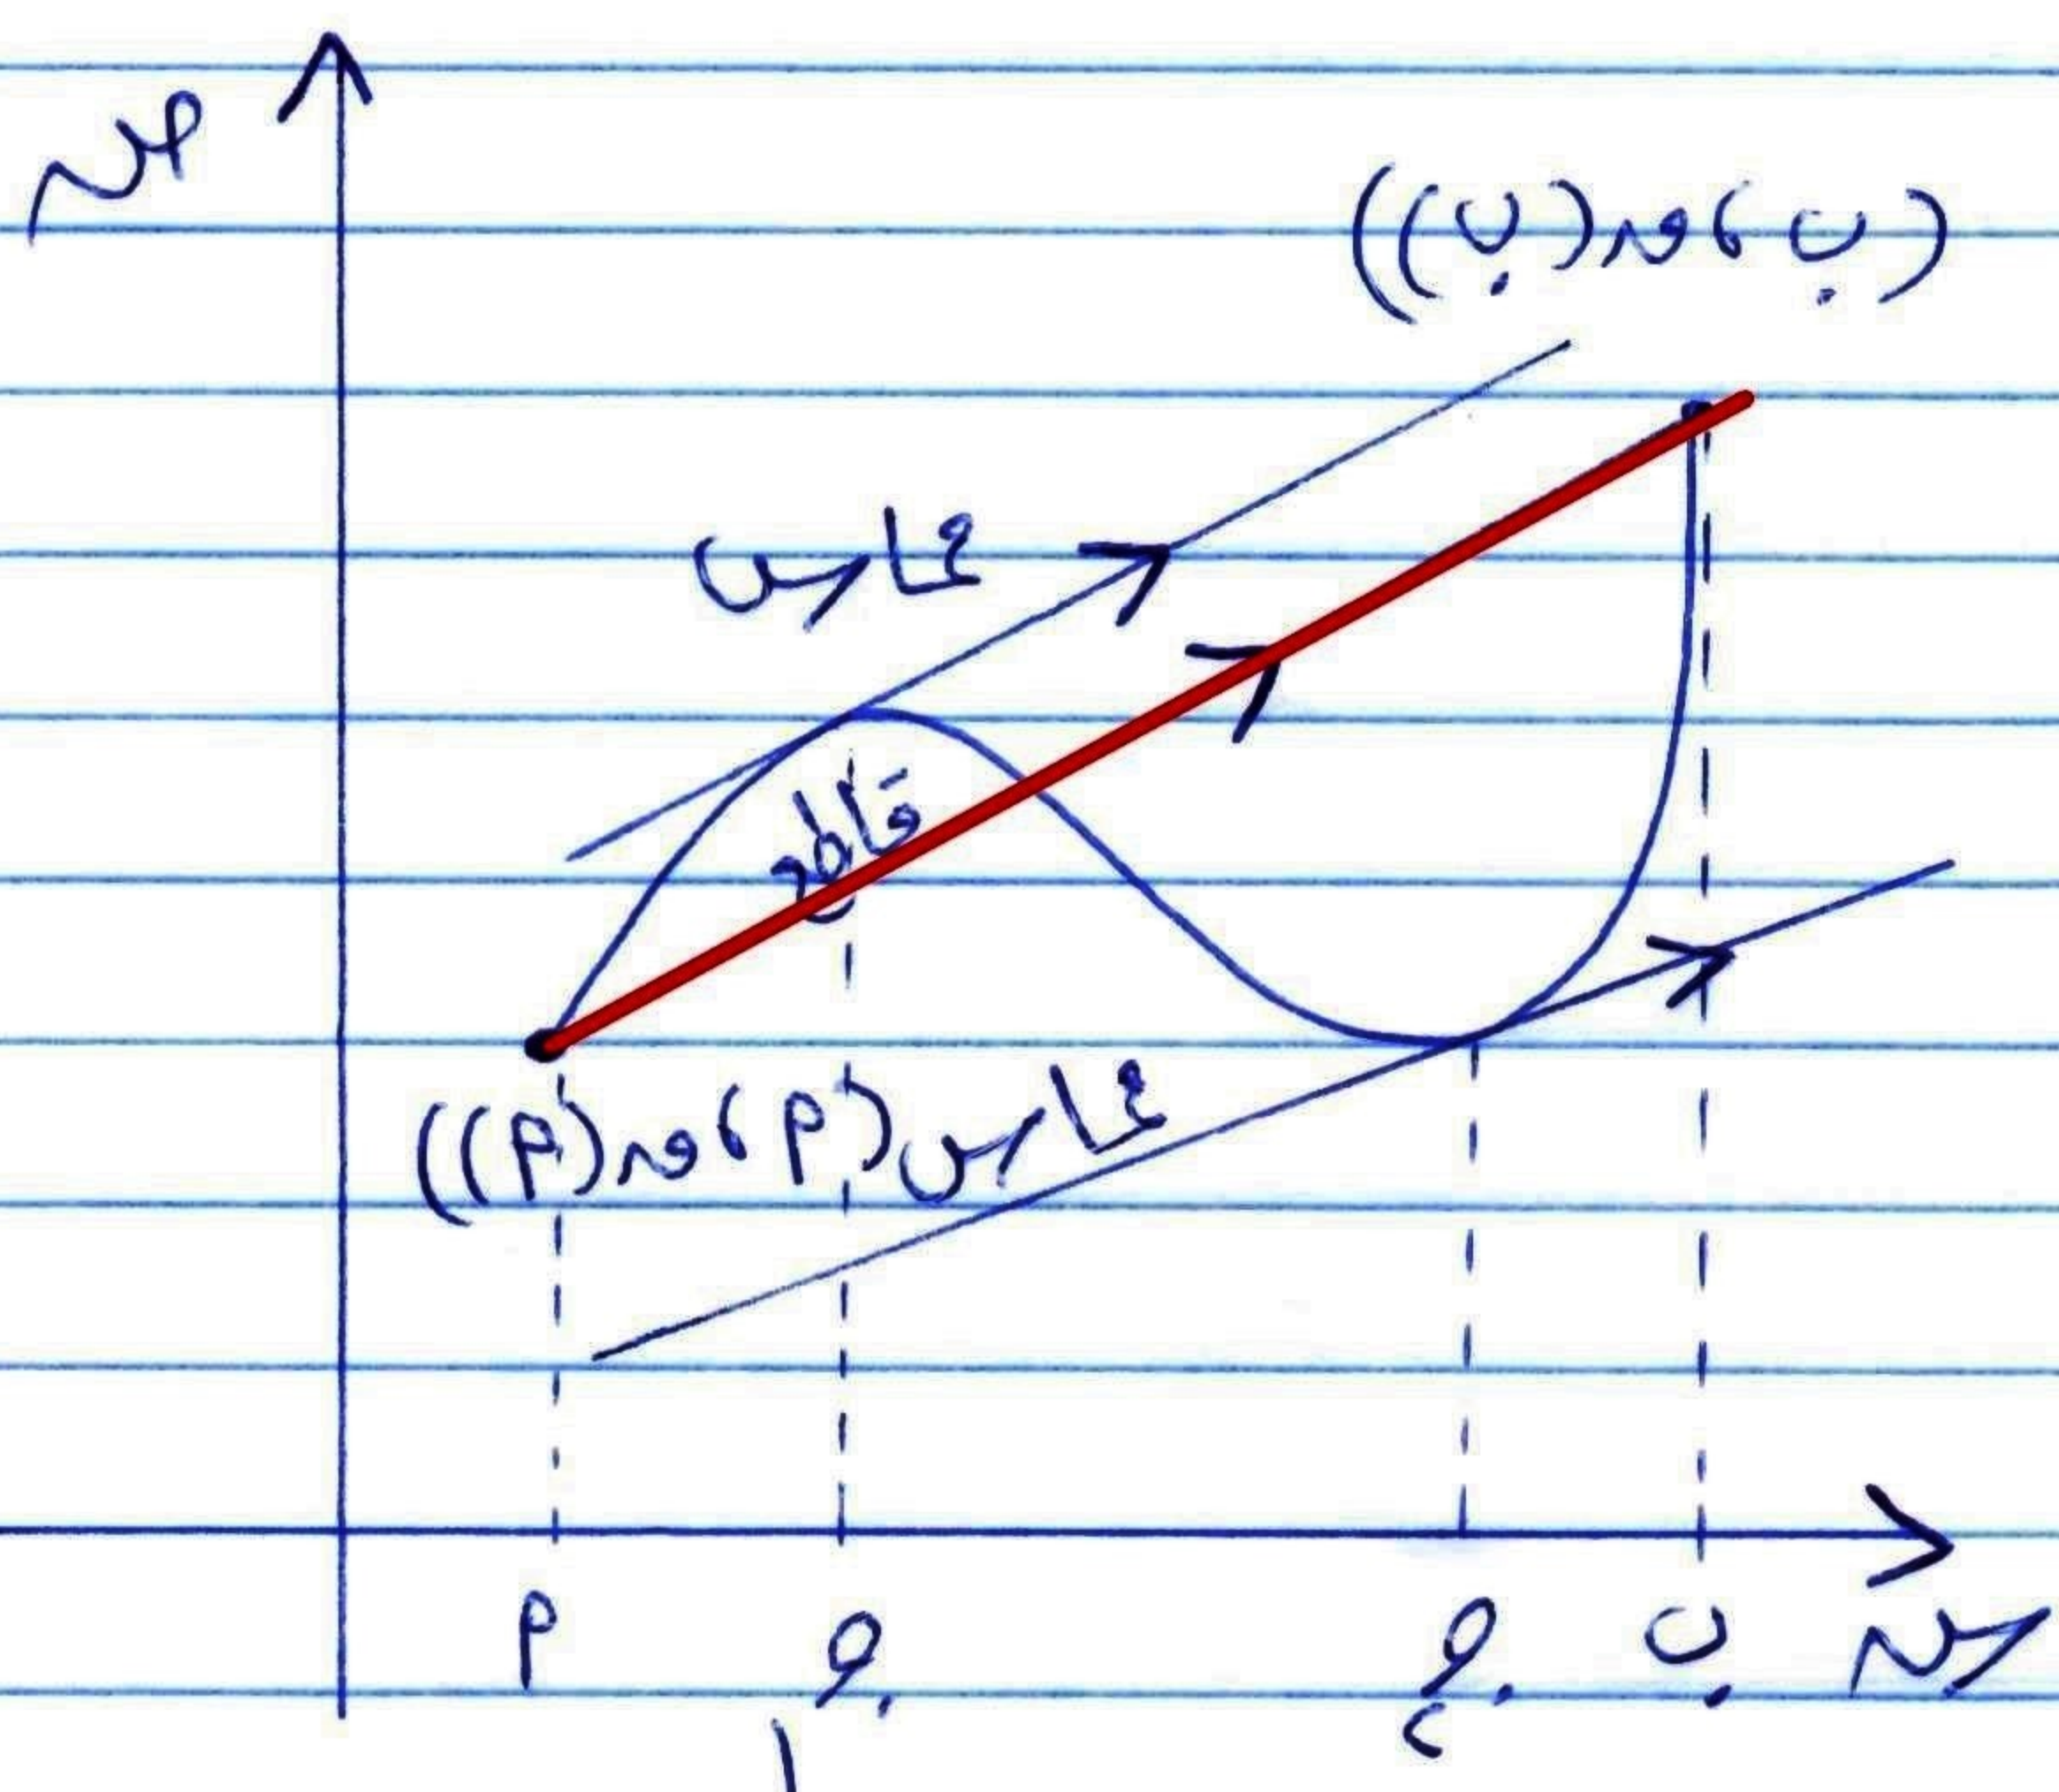 ص
(ب ، ق(ب))
مماس
قاطع
(م ، ق(م))
مماس
م جـ١ جـ٢ ب س